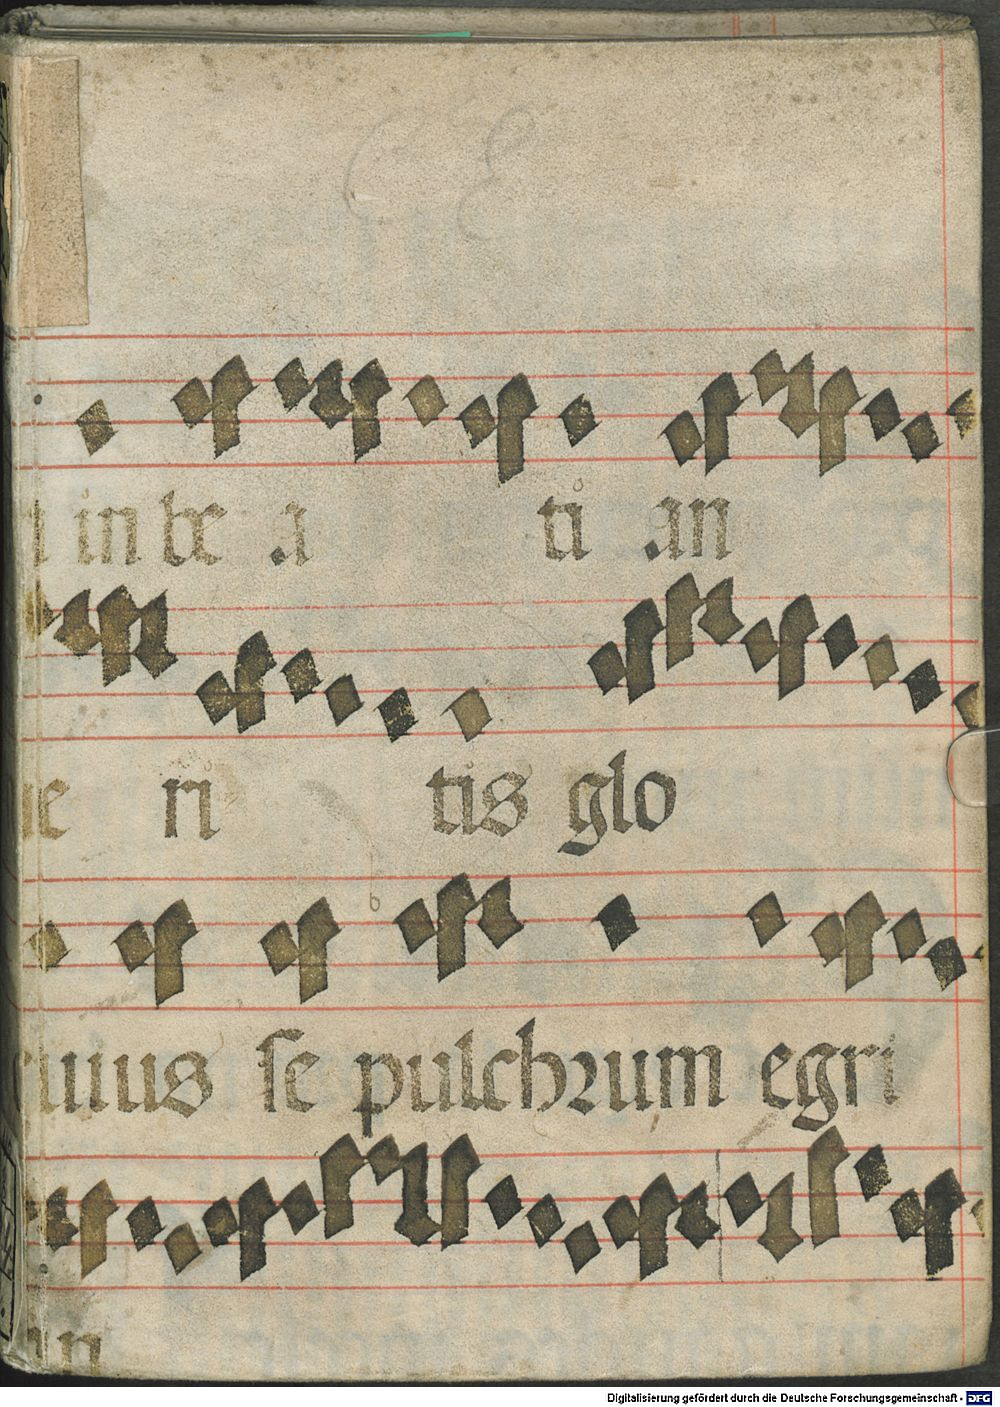 in be a ti an
ri tis glo
uius se pulchrum egri
Digitalisierung gefördert durch die Deutsche Forschungsgemeinschaft - DFG